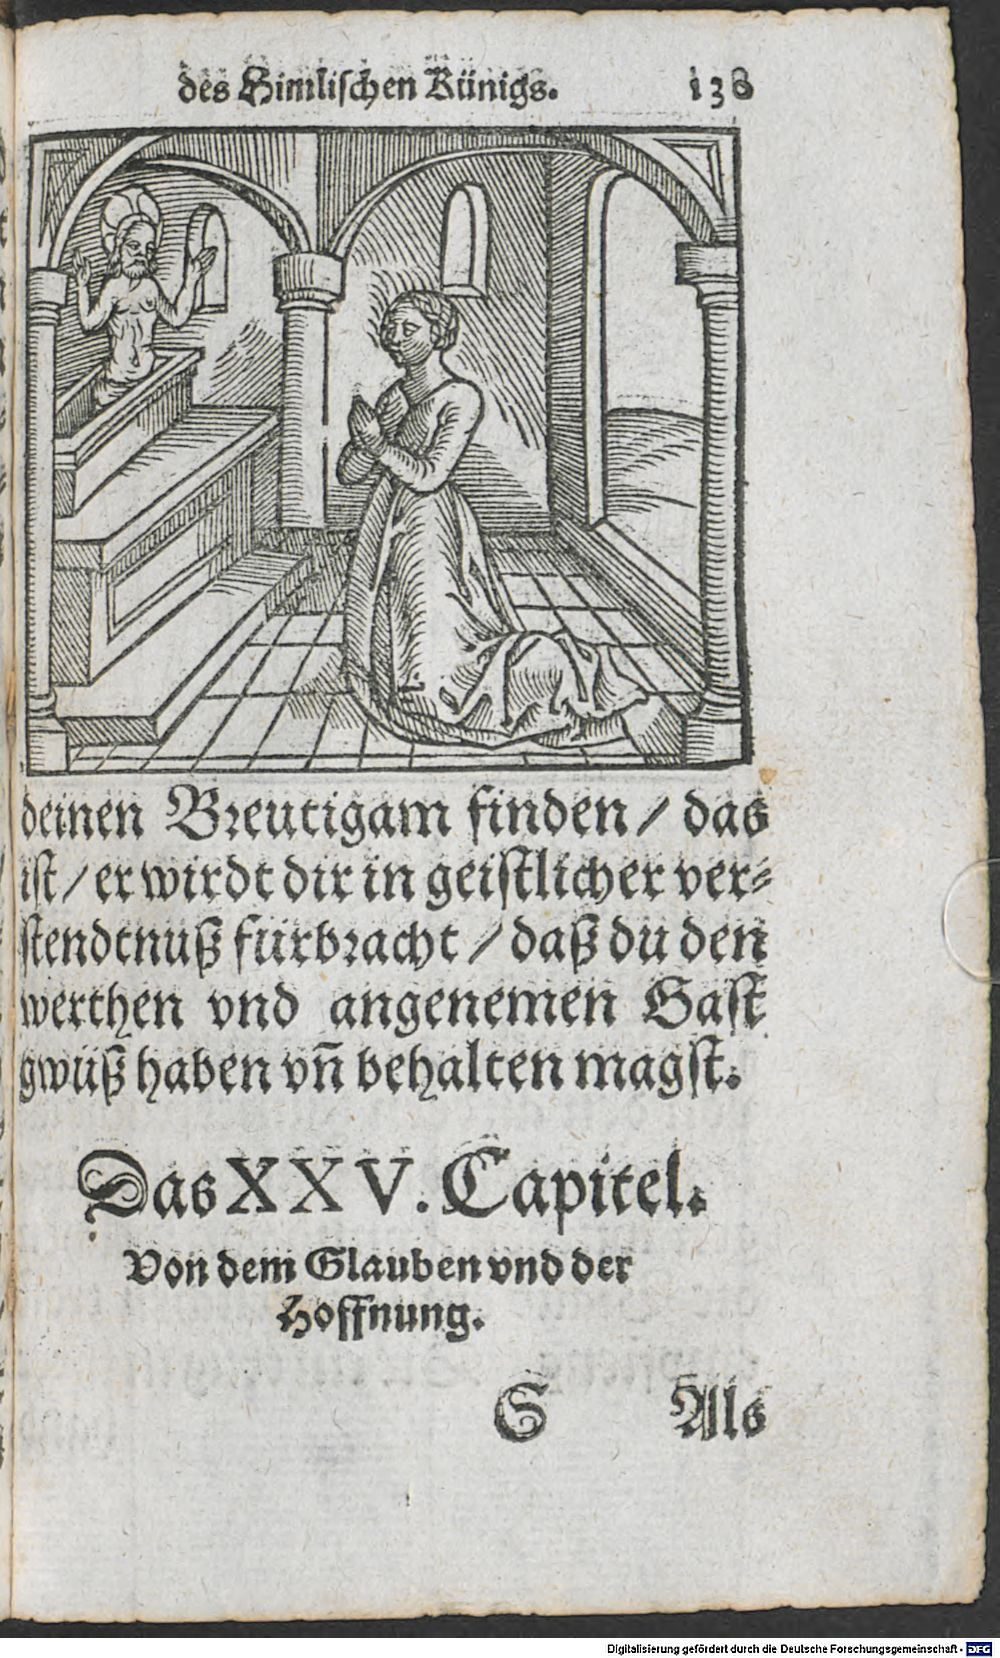 des Himlischen Künigs. 138
deinen Breutigam finden / das
ist / er wirdt dir in geistlicher ver-
stendtnuß fürbracht / daß du den
werthen vnd angenemen Gast
gwüß haben vñ behalten magst.
Das XXV. Capitel.
Von dem Glauben vnd der
Hoffnung.
S Als
Digitalisierung gefördert durch die Deutsche Forschungsgemeinschaft - DFG